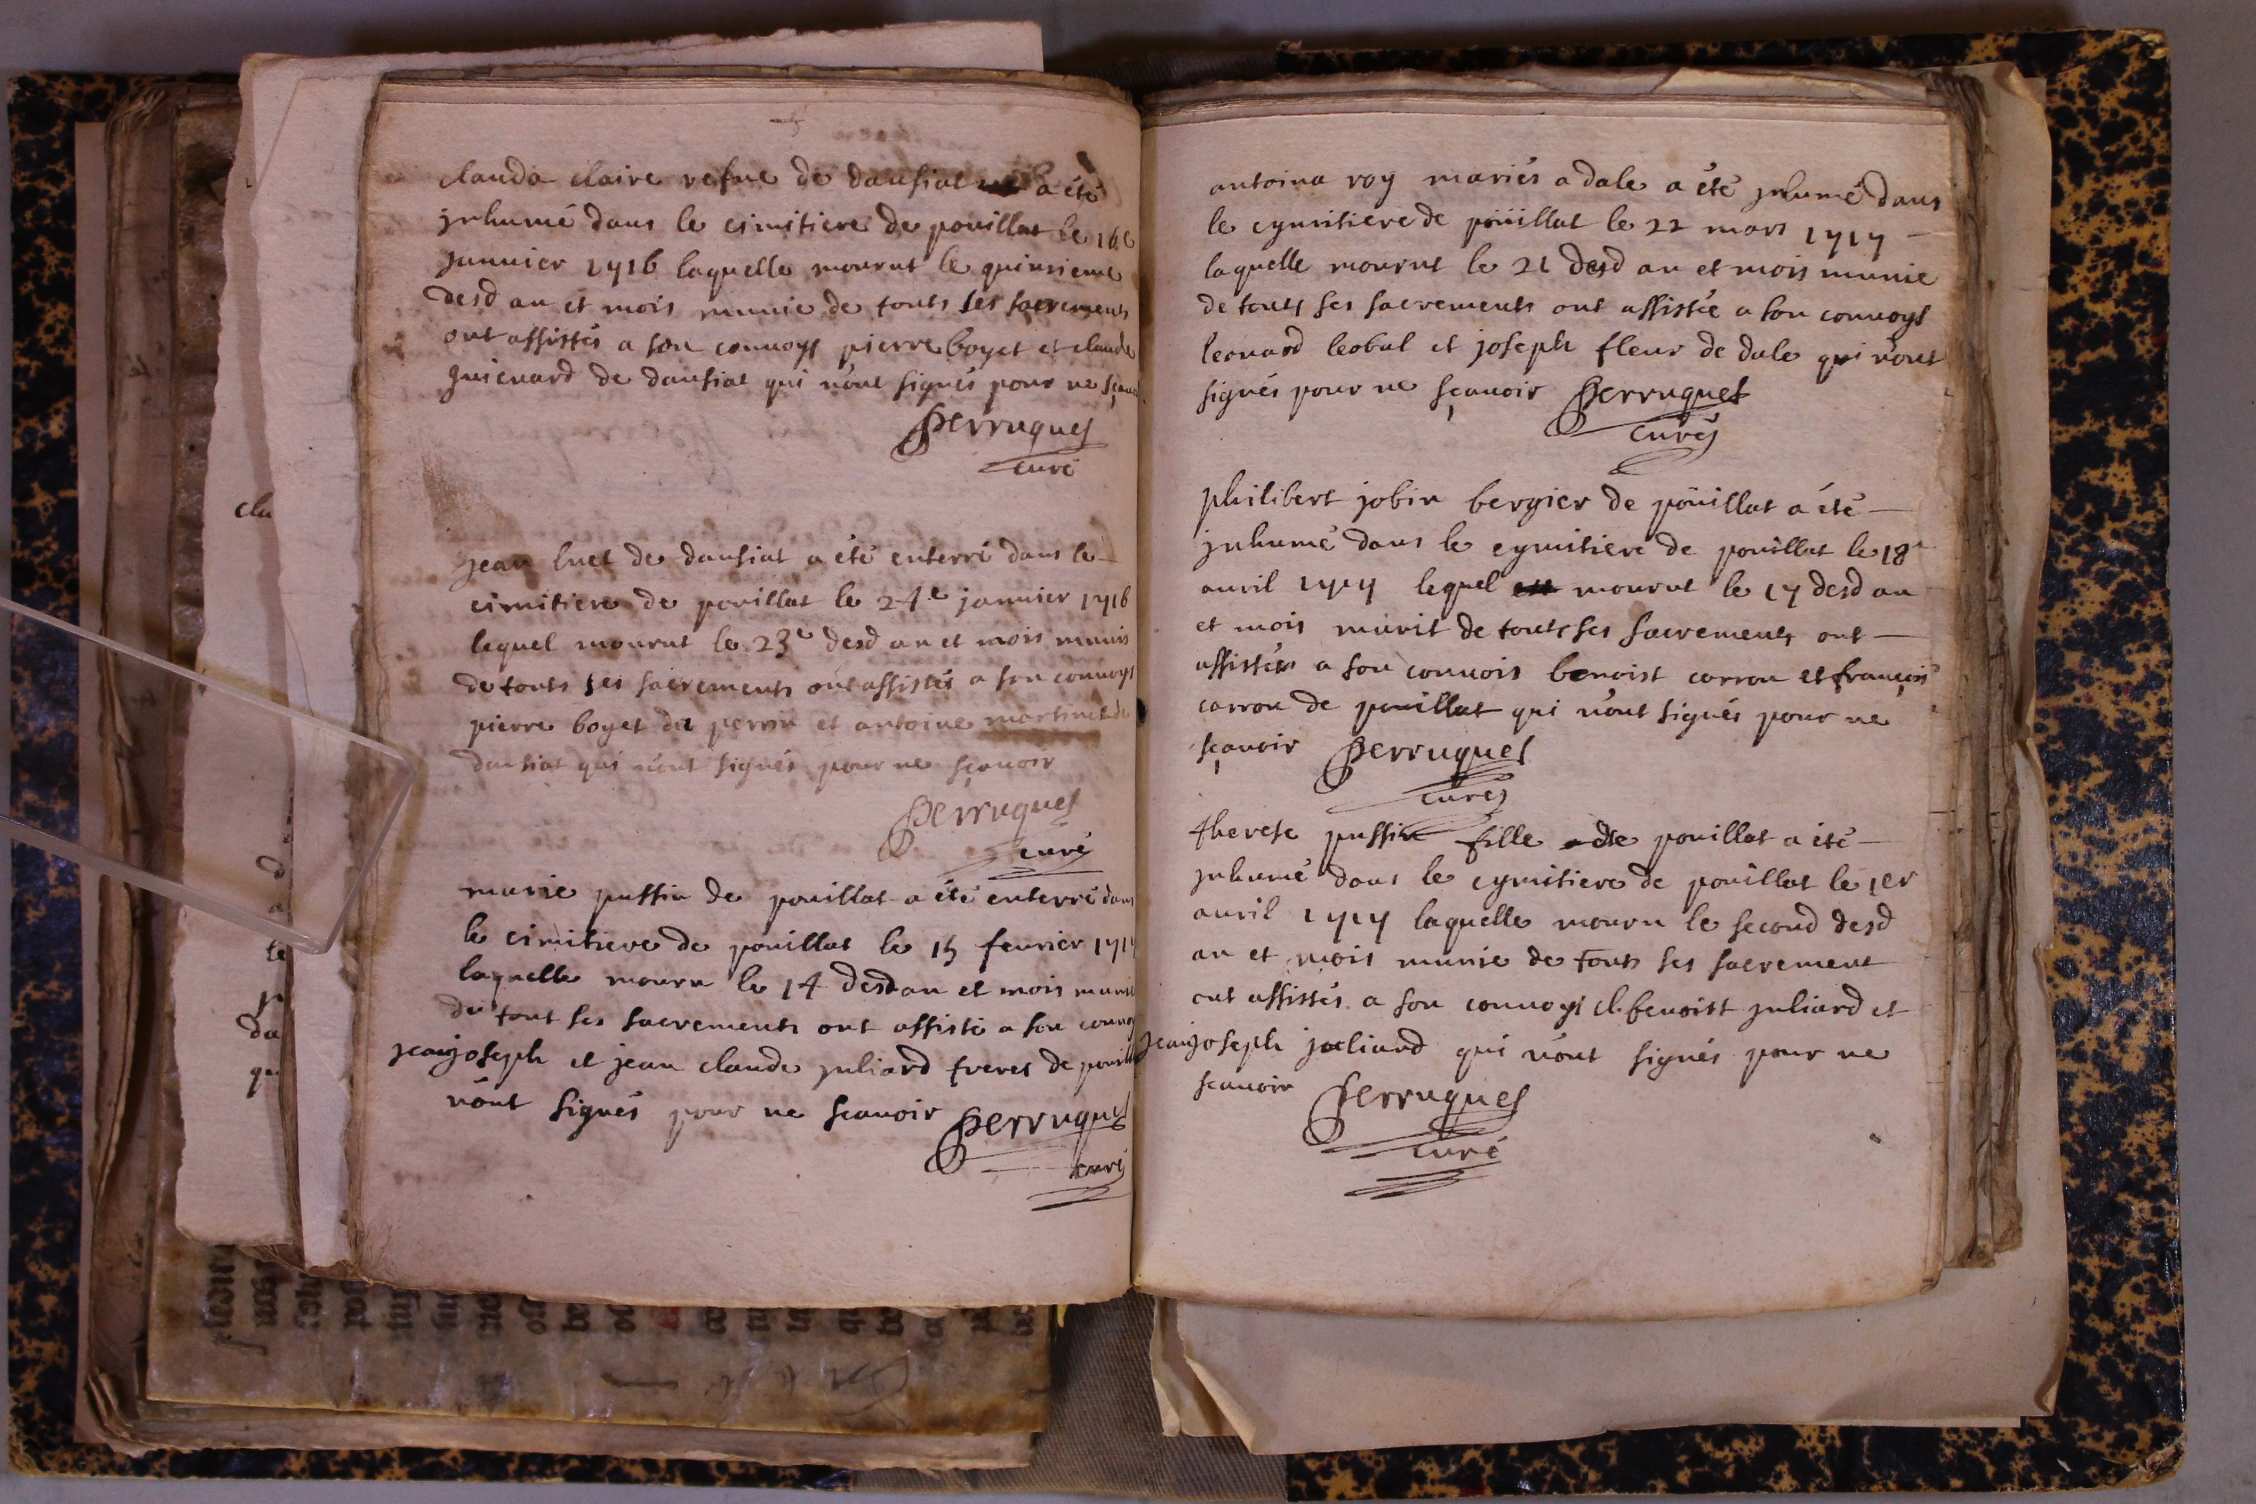 clauda claire vefue de dansiat a été
jnhumé dans le cimitiere de pouillat le 16e
januier 1716 laquelle mourut le quinsieme
desd an et mois munie de touts ses sacrements
ont assistés a son conuoys pierre boyet et claude
guienard de dansiat qui n'ont signés pour ne sçauoir
Perruquet
curé
jean luet de dansiat a été enterré dans le
cimitiere de pouillat le 24e januier 1716
lequel mourut le 23e desd an et mois munis
de touts ses sacrements ont assistés a son conuoys
pierre boyet et antoine martinet de
dansiat qui n'ont signés pour ne sçauoir
Perruquet
curé
marie pussin de pouillat a été enterré dans
le cimitiere de pouillat le 15 feurier 1717
laquelle mouru le 14 desd an et mois munie
de tout ses sacrements ont assisté a son conuoy
jean joseph et jean claude juliard freres de pouillat
n'ont signés pour ne scauoir Perruquet
curé
antoina roy mariés a dale a été jnhumé dans
le cymitiere de pouillat le 22 mars 1717
laquelle mourut le 21 desd an et mois munie
de touts ses sacrements ont assistée a son conuoys
leonard lesbal et joseph fleur de dale qui n'ont
signés pour ne sçauoir Perruquet
curé
philibert jobin bergier de pouillat a été
jnhumé dans le cymitiere de pouillat le 18e
auril 1717 lequel mourut le 17 desd an
et mois munit de touts ses sacrements ont
assistés a son conuois benoist carron et françois
carron de pouillat qui n'ont signés pour ne
sçauoir Perruquet
curé
therese pussin fille de pouillat a été
jnhumé dans le cymitiere de pouillat le 1er
auril 1717 laquelle mouru le second desd
an et mois munie de touts ses sacrement
ont assistés a son conuoys cl. benoist juliard et
jean joseph juliard qui n'ont signés pour ne
scauoir Perruquet
curé